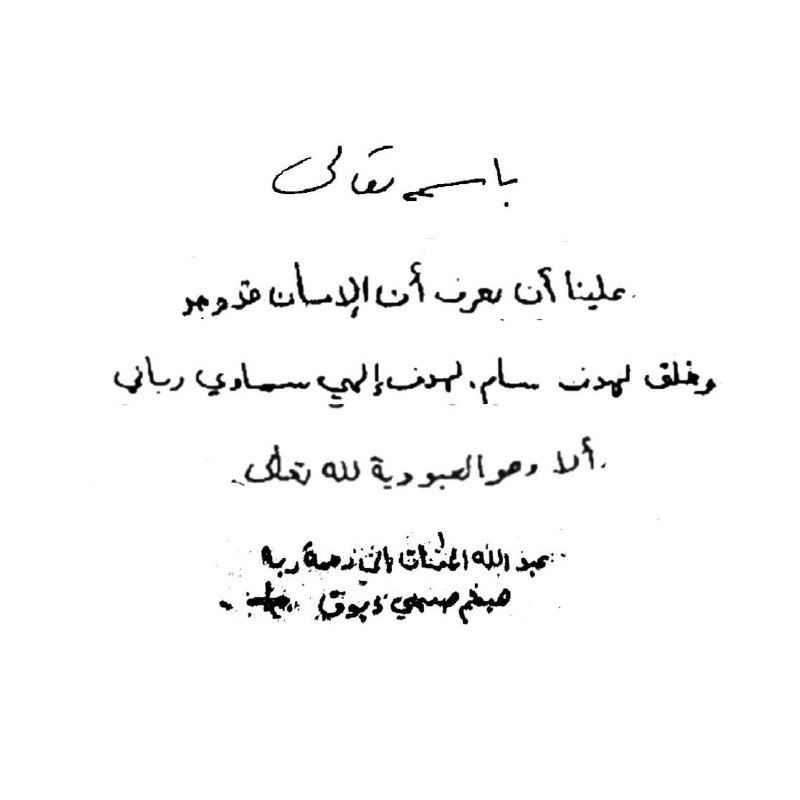 باسمه تعالى
علينا أن نعرف أن الإنسان قد وجد
وخلق لهدف سام، لهدف إلهي سماوي رباني
ألا وهو العبودية لله تعالى.
عبد الله المشتاق إلى رحمة ربه